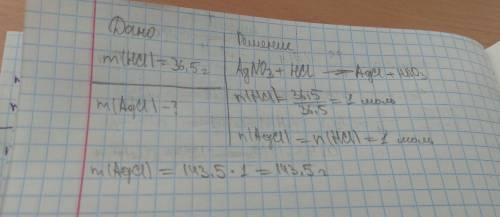 Дано
Решение
m(HCl) = 36,5 г
AgNO3 + HCl = AgCl + HNO3
m(AgCl) - ?
n(HCl) = 36,5/36,5 = 1 моль
n(AgCl) = n(HCl) = 1 моль
m(AgCl) = 143,5 · 1 = 143,5 г